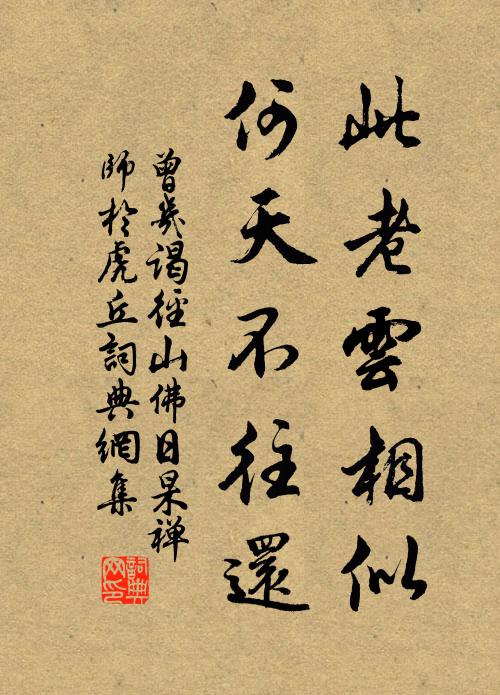 此老雲相似
何天不往還
曾幾謁徑山佛日杲禅
師於虎丘詞典網集
詞典
网印